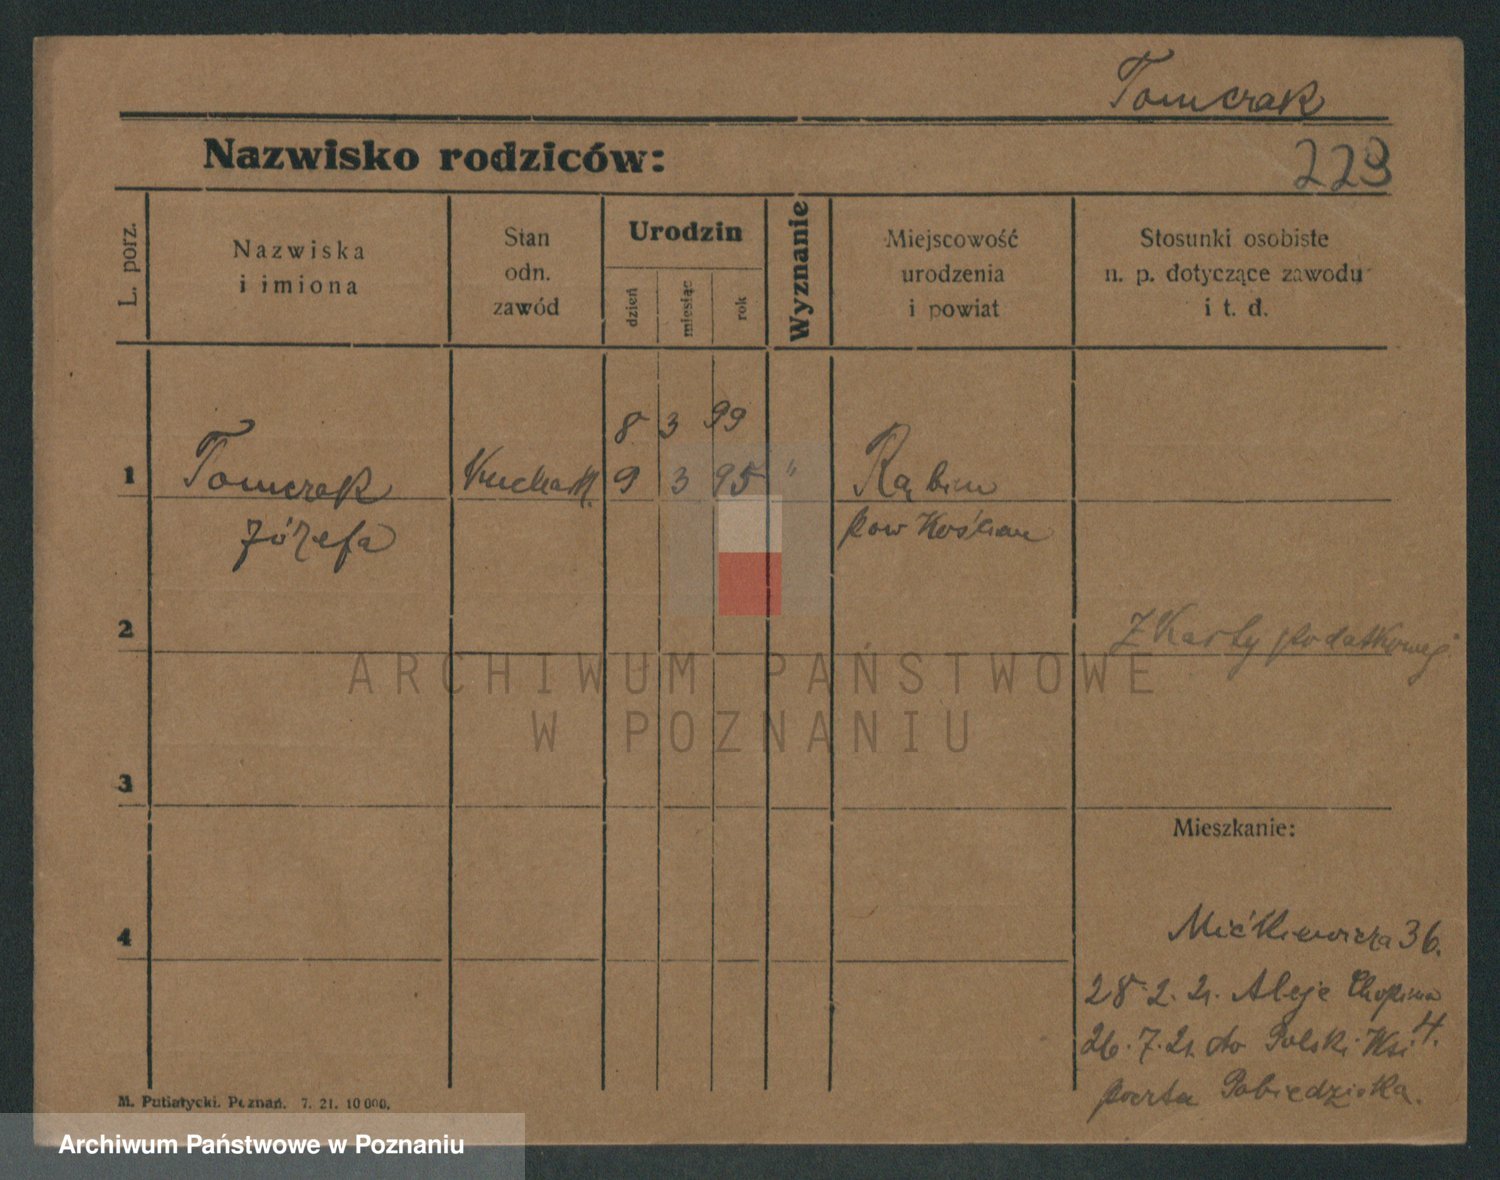 Tomczak
Nazwisko rodziców:
223
L. porz.
Nazwiska
i imiona
Stan
odn.
zawód
Urodzin
dzień
miesiąc
rok
Wyznanie
Miejscowość
urodzenia
i powiat
Stosunki osobiste
n. p. dotyczące zawodu
i t. d.
8 3 99
1 Tomczak 9 3 95 " Rąbin
Józefa pow Kościan
2 Z Karty podatkowej
ARCHIWUM PAŃSTWOWE
W POZNANIU
3
Mieszkanie:
4 Mićkiewicza 36.
28.2.21. Aleje Chopina
4.
26.7.21 do Polski Wsi
poczta Pobiedziska.
M. Putiatycki. Poznań. 7. 21. 10 000.
Archiwum Państwowe w Poznaniu